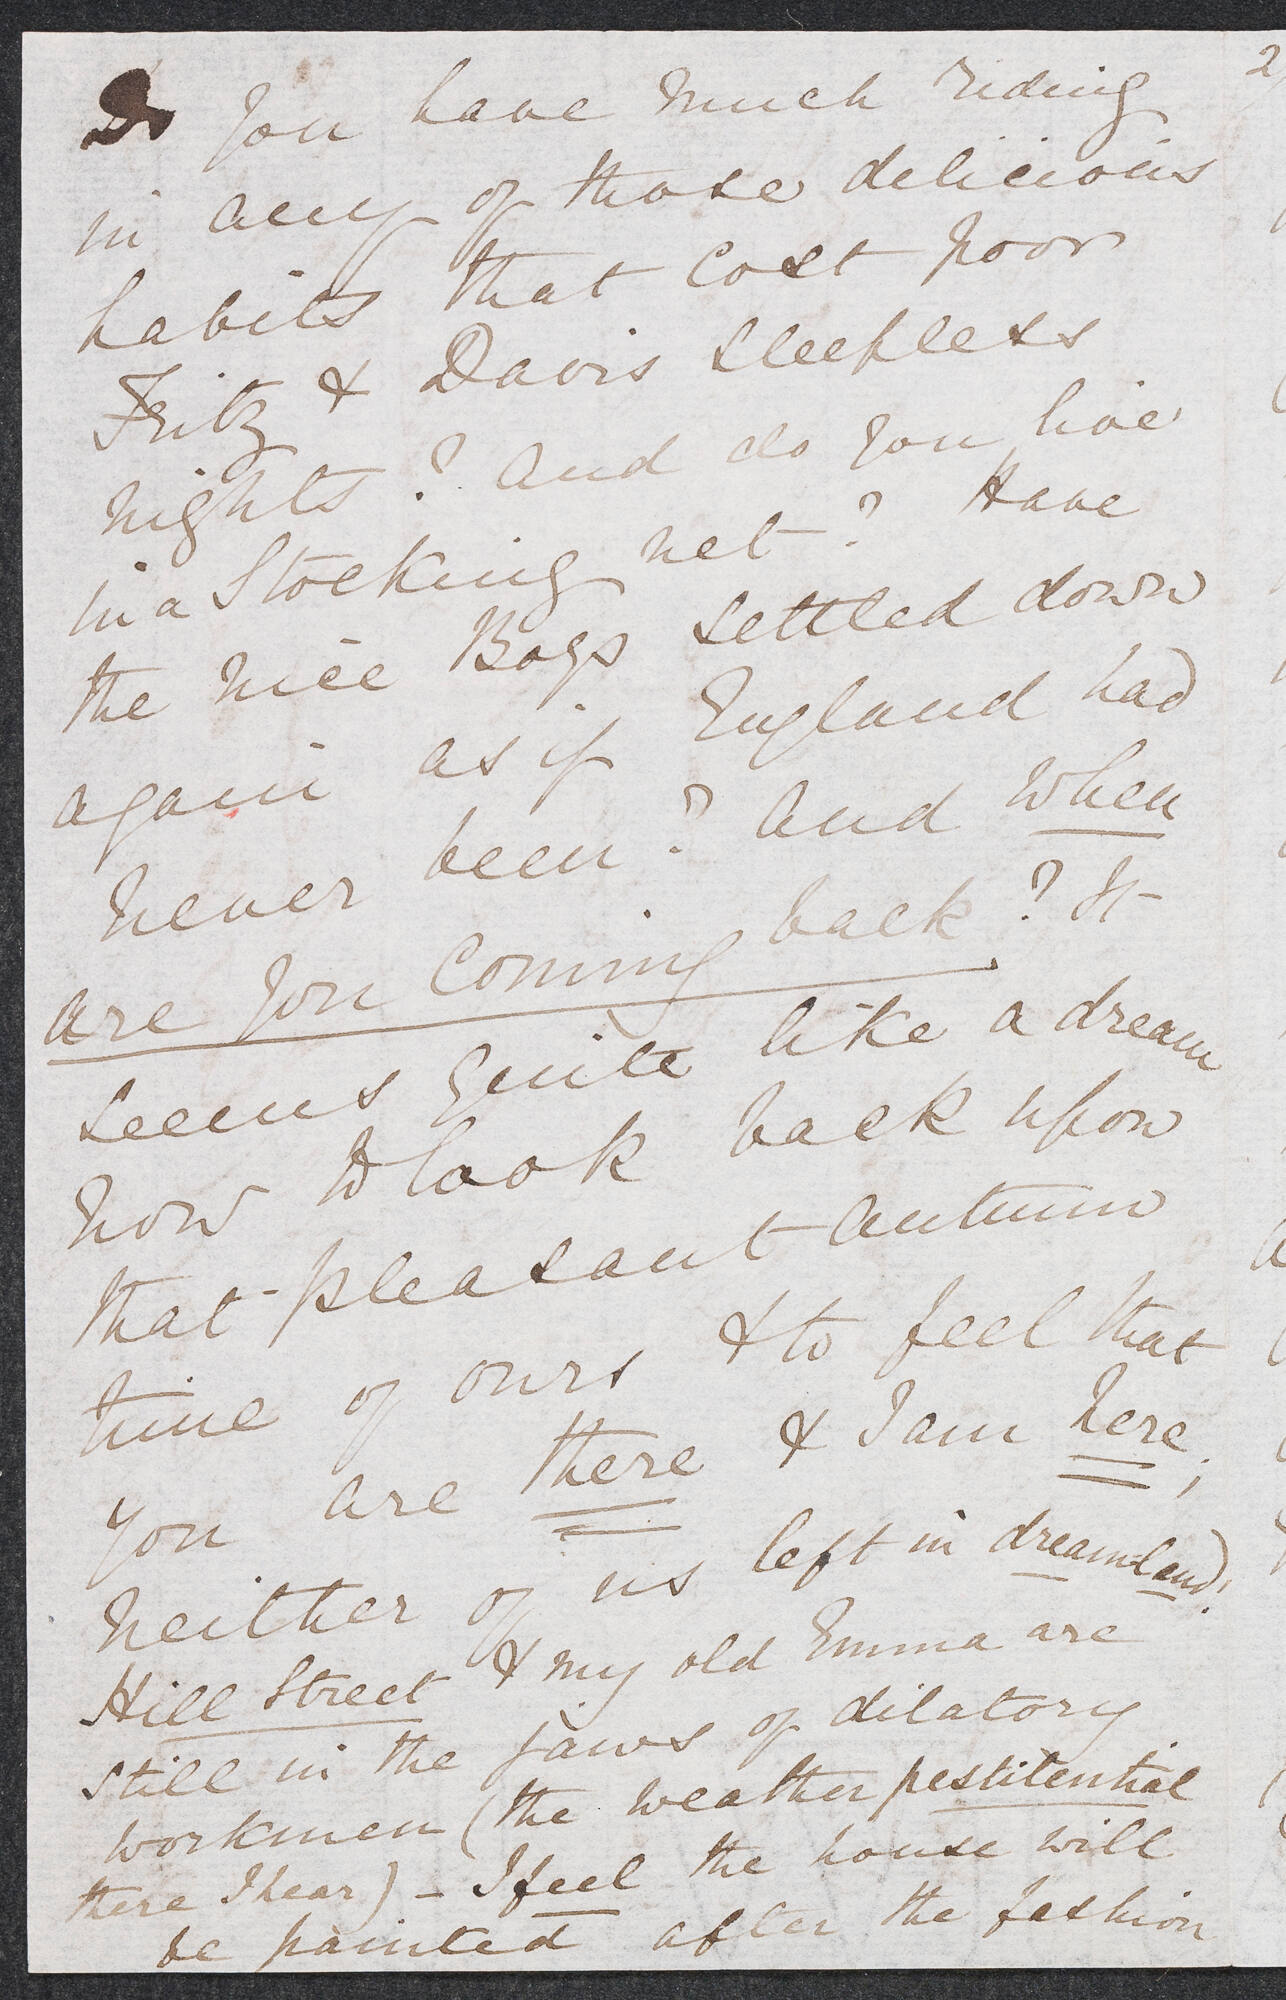 Do you have much riding
in any of those delicious
habits that cost poor
Fritz & Davis sleepless
nights? And do you live
in a Stocking net? Have
the nice Boys settled down
again as if England had
never been? And when
are you coming back? It
seems quite like a dream
now to look back upon
that pleasant autumn
time of ours & to feel that
you are there & I am here;
neither of us left in dream-land!
Hill Street & my old Emma are
still in the jaws of dilatory
workmen (the weather pestilential
there I hear) - I feel the house will
be painted after the fashion
2